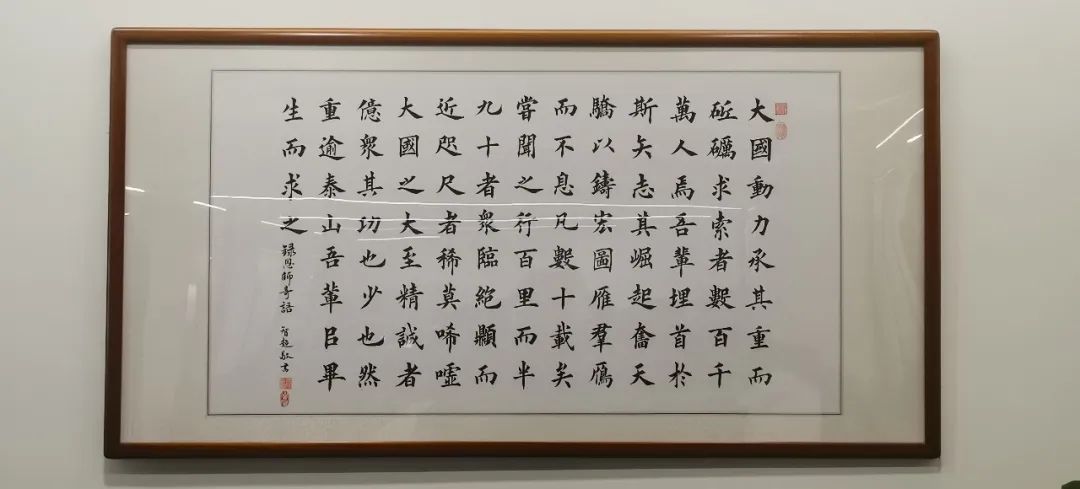 大國動力承其重而
砥礪求索者數百千
萬人焉吾輩埋首於
斯矣志其崛起奮天
驕以鑄宏圖雁羣鴈
而不息凡數十載矣
嘗聞之行百里而半
九十者衆臨絶顚而
近咫尺者稀莫唏嘘
大國之大至精誠者
億衆其功也少也然
重逾泰山吾輩㠯畢
生而求之
録恩師奇語